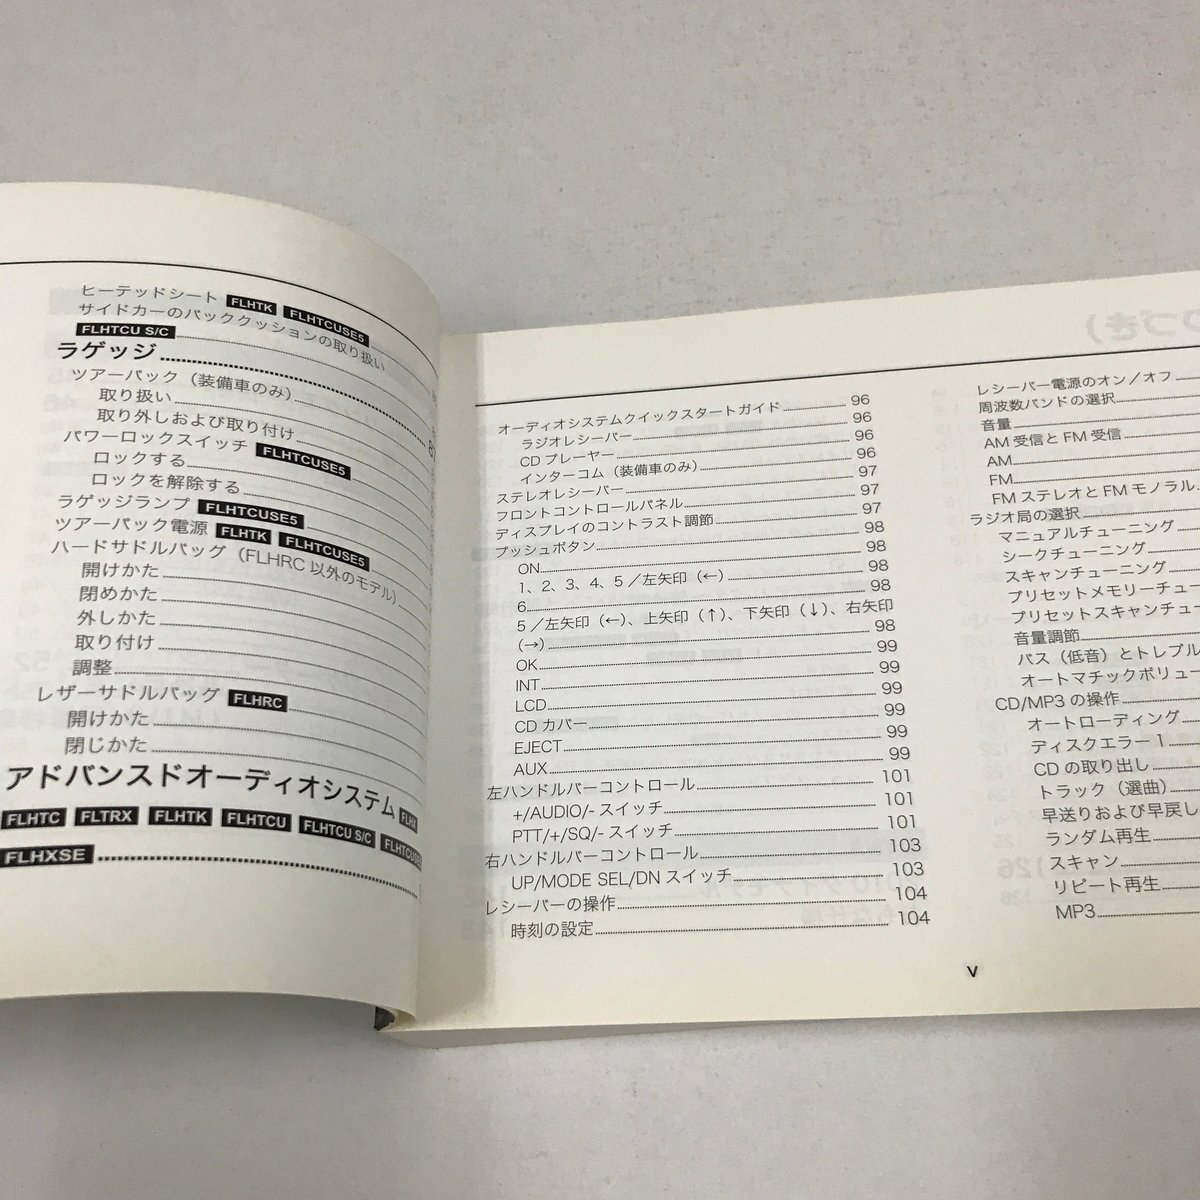 ヒーテッドシート FLHTK FLHTCUSE5
サイドカーのバッククッションの取り扱い
FLHTCU S/C
ラゲッジ
ツアーパック（装備車のみ）
取り扱い
取り外しおよび取り付け
パワーロックスイッチ FLHTCUSE5
ロックする
ロックを解除する
ラゲッジランプ FLHTCUSE5
ツアーパック電源 FLHTK FLHTCUSE5
ハードサドルバッグ（FLHRC 以外のモデル）
開けかた
閉めかた
外しかた
取り付け
調整
レザーサドルバッグ FLHRC
開けかた
閉じかた
アドバンスドオーディオシステム FLHX
FLHTC FLTRX FLHTK FLHTCU FLHTCU S/C FLHTCUSE5
FLHXSE
オーディオシステムクイックスタートガイド 96
ラジオレシーバー 96
CD プレーヤー 96
インターコム（装備車のみ） 96
ステレオレシーバー 97
フロントコントロールパネル 97
ディスプレイのコントラスト調節 97
プッシュボタン 98
ON 98
1、2、3、4、5／左矢印（←） 98
6 98
5／左矢印（←）、上矢印（↑）、下矢印（↓）、右矢印
（→） 98
OK 99
INT 99
LCD 99
CD カバー 99
EJECT 99
AUX 99
左ハンドルバーコントロール 101
+/AUDIO/- スイッチ 101
PTT/+/SQ/- スイッチ 101
右ハンドルバーコントロール 103
UP/MODE SEL/DN スイッチ 103
レシーバーの操作 104
時刻の設定 104
レシーバー電源のオン／オフ
周波数バンドの選択
音量
AM 受信と FM 受信
AM
FM
FM ステレオと FM モノラル
ラジオ局の選択
マニュアルチューニング
シークチューニング
スキャンチューニング
プリセットメモリーチュー
プリセットスキャンチュー
音量調節
バス（低音）とトレブル
オートマチックボリュー
CD/MP3 の操作
オートローディング
ディスクエラー 1
CD の取り出し
トラック（選曲）
早送りおよび早戻し
ランダム再生
スキャン
リピート再生
MP3
v